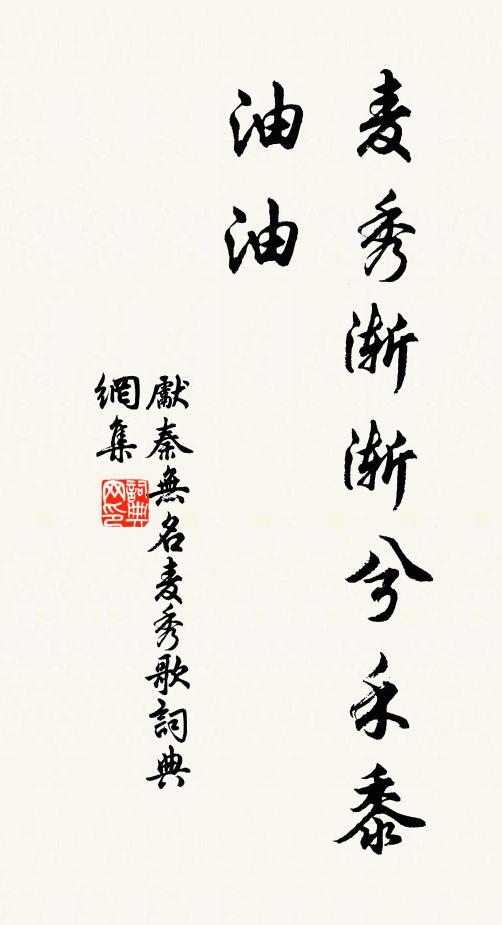 麦秀渐渐兮禾黍
油油
献秦無名麦秀歌詞典
網集
詞典
网印